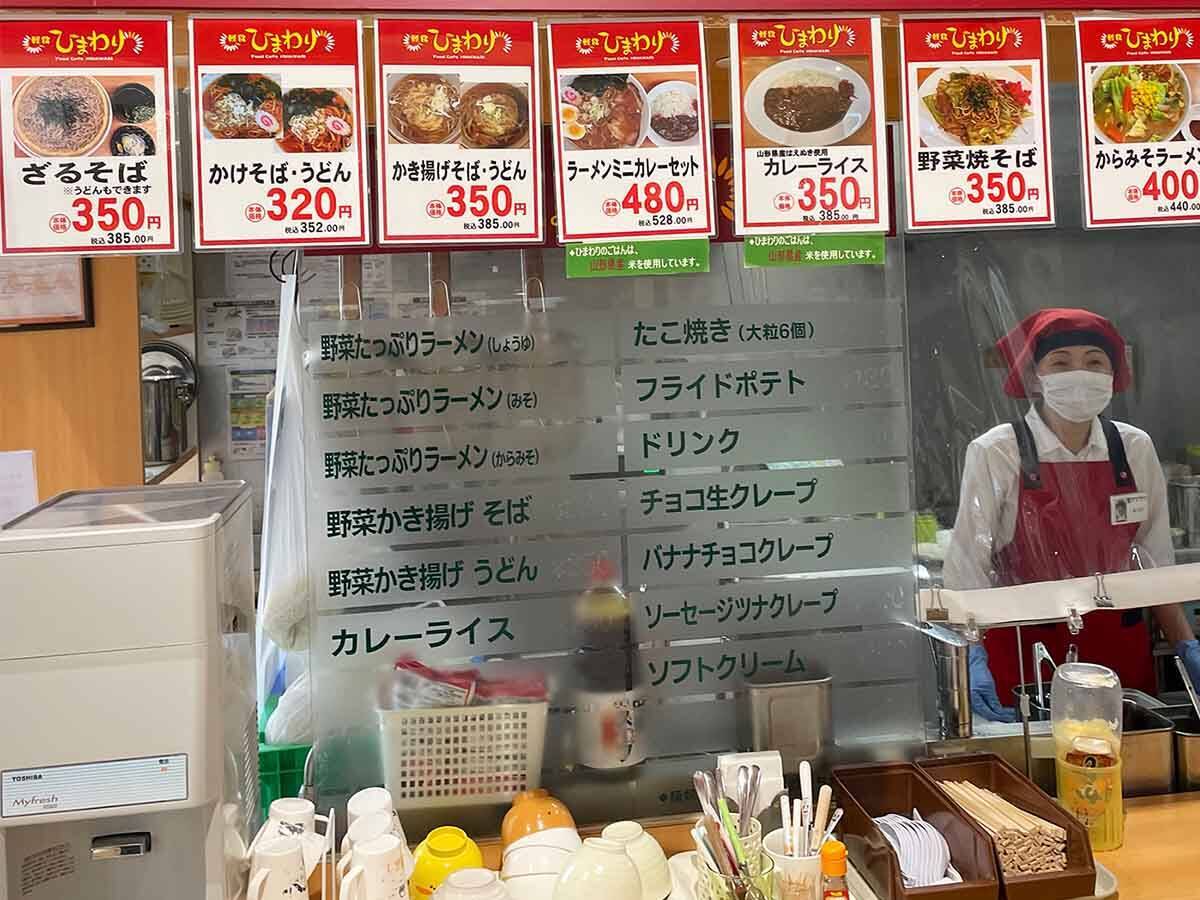 軽食 ひまわり
Food Cafe HIMAWARI
ざるそば
※うどんもできます
本体価格 350円
税込 385.00円
軽食 ひまわり
Food Cafe HIMAWARI
かけそば・うどん
本体価格 320円
税込 352.00円
軽食 ひまわり
Food Cafe HIMAWARI
かき揚げそば・うどん
本体価格 350円
税込 385.00円
軽食 ひまわり
Food Cafe HIMAWARI
ラーメンミニカレーセット
本体価格 480円
税込 528.00円
◆ひまわりのごはんは、
山形県産 米を使用しています。
軽食 ひまわり
Food Cafe HIMAWARI
山形県産はえぬき使用
カレーライス
本体価格 350円
税込 385.00円
◆ひまわりのごはんは、
山形県産 米を使用しています。
軽食 ひまわり
Food Cafe HIMAWARI
野菜焼そば
本体価格 350円
税込 385.00円
軽食 ひまわり
Food Cafe HIMAWARI
からみそラーメン
本体価格 400
税込 440.00
野菜たっぷりラーメン(しょうゆ)
野菜たっぷりラーメン(みそ)
野菜たっぷりラーメン(からみそ)
野菜かき揚げ そば
野菜かき揚げ うどん
カレーライス
たこ焼き(大粒6個)
フライドポテト
ドリンク
チョコ生クレープ
バナナチョコクレープ
ソーセージツナクレープ
ソフトクリーム
TOSHIBA
Myfresh